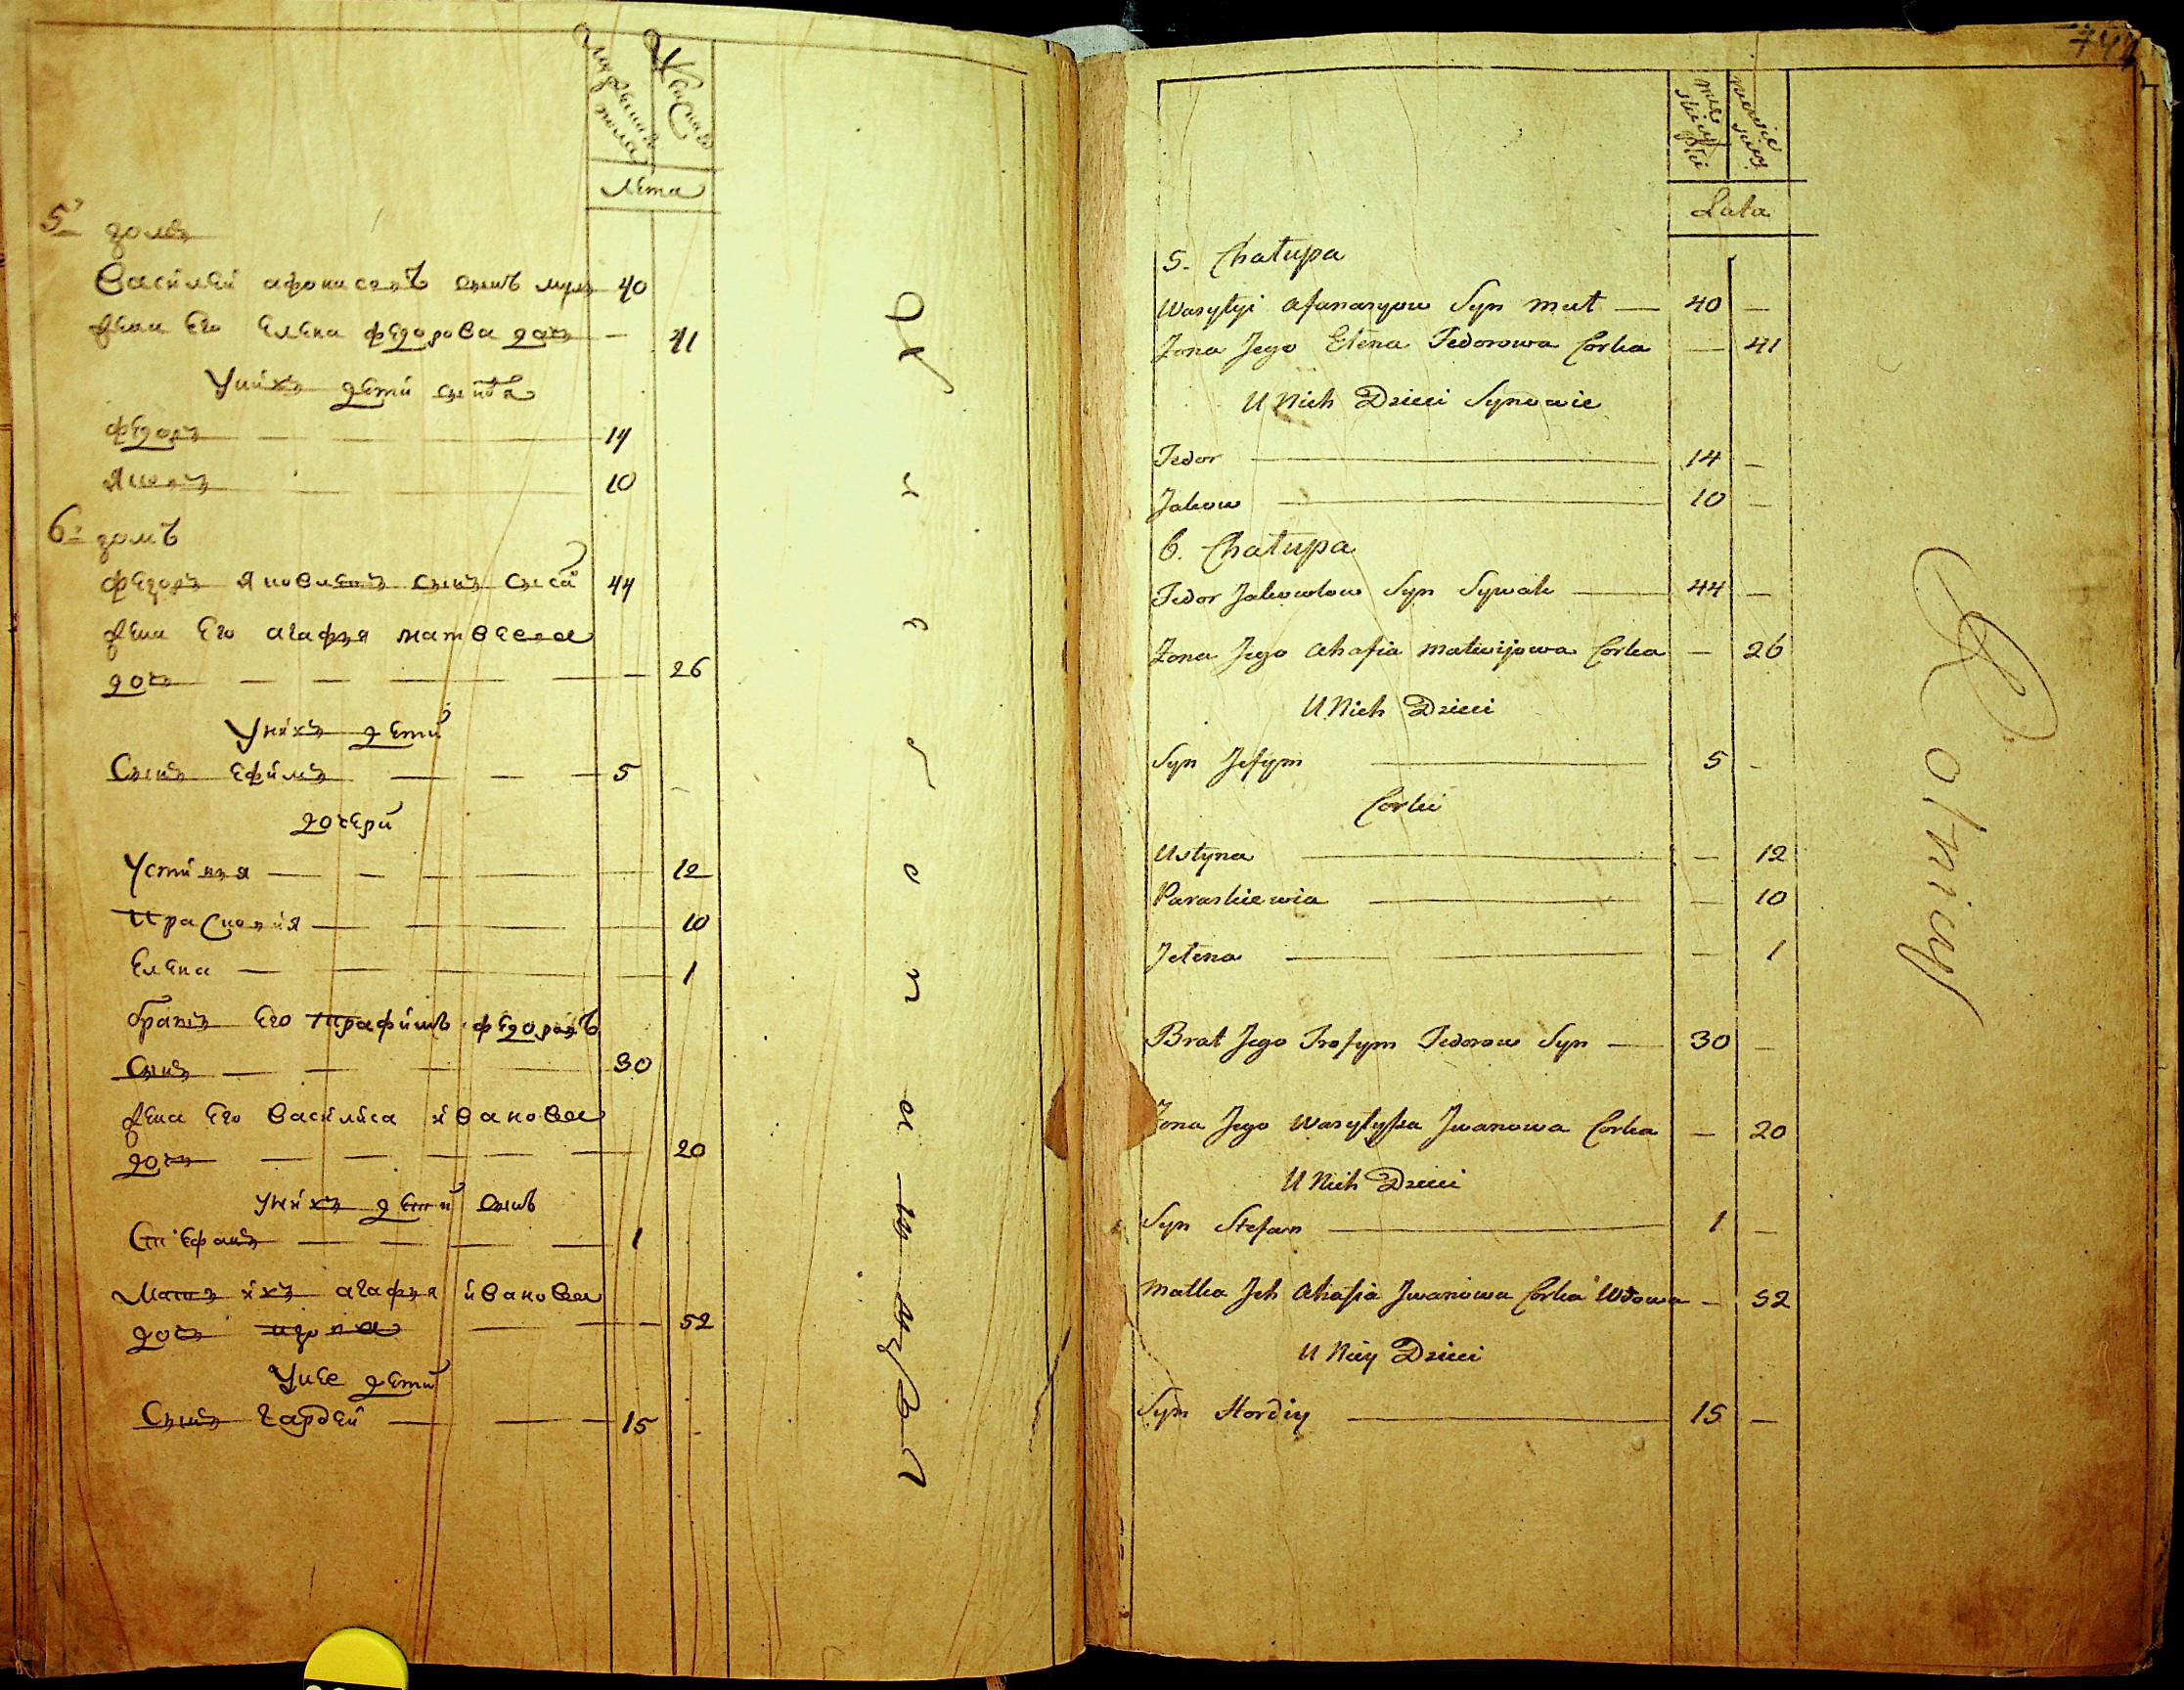 мужеска пола
женска
лета
5й домъ
Василей афонасевъ сынъ мулъ 40
жена его елена федорова дочь — 41
У них дети сыновя
федоръ — 14
яковъ — 10
6й домъ
федоръ яковлевъ сынъ 44
жена его агафия матвеева
дочь — 26
У них дети
Сынъ ефимъ — 5
дочери
Устиния — 12
Прасковия — 10
елена — 1
братъ его трафимъ федоровъ
Сынъ — 30
жена его василиса иванова
дочь — 20
у них дети сынъ
Стефанъ — 1
Мать ихъ агафия иванова
дочь вдова — 52
У нее дети
Сынъ гардей — 15
744
męskiey płci
Lata
5. Chałupa
Wasylyi Afanasyow Syn Muł — 40 —
Zona Jego Elena Fedorowa Corka — 41
U Nich Dzieci Synowie
Fedor — 14 —
Jakow — 10 —
6. Chałupa
Fedor Jakowlow Syn Sywak — 44 —
Zona Jego Ahafia Matwijowa Corka — 26
U Nich Dzieci
Syn Jefym — 5 —
Corki
Ustyna — 12
Paraskiewia — 10
Jelena — 1
Brat Jego Trofym Fedorow Syn — 30 —
Zona Jego Wasylyssa Jwanowa Corka — 20
U Nich Dzieci
Syn Stefan — 1 —
Matka Jch Ahafia Jwanowa Corka Wdowa — 52
U Niey Dzieci
Syn Hordiy — 15 —
Rolnicy